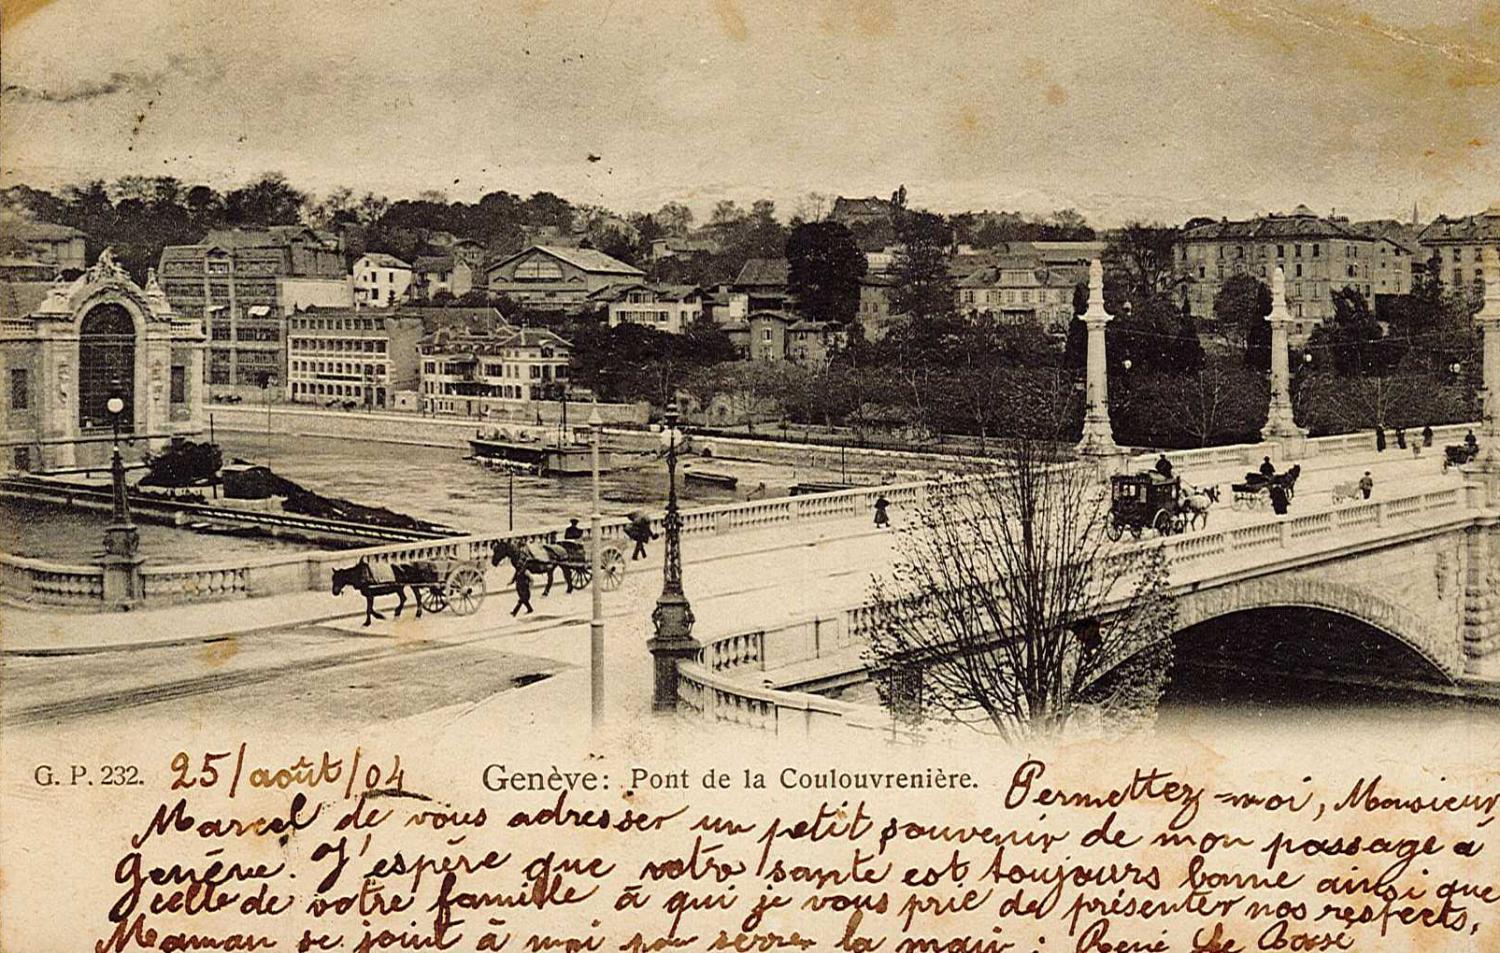 G. P. 232. 25/août/04 Genève: Pont de la Coulouvrenière. Permettez-moi, Monsieur
Marcel de vous adresser un petit souvenir de mon passage à
Genève. J'espère que votre sante est toujours bonne ainsi que
celle de votre famille à qui je vous prie de présenter nos respects,
Maman se joint à moi pour serrer la main : René Le